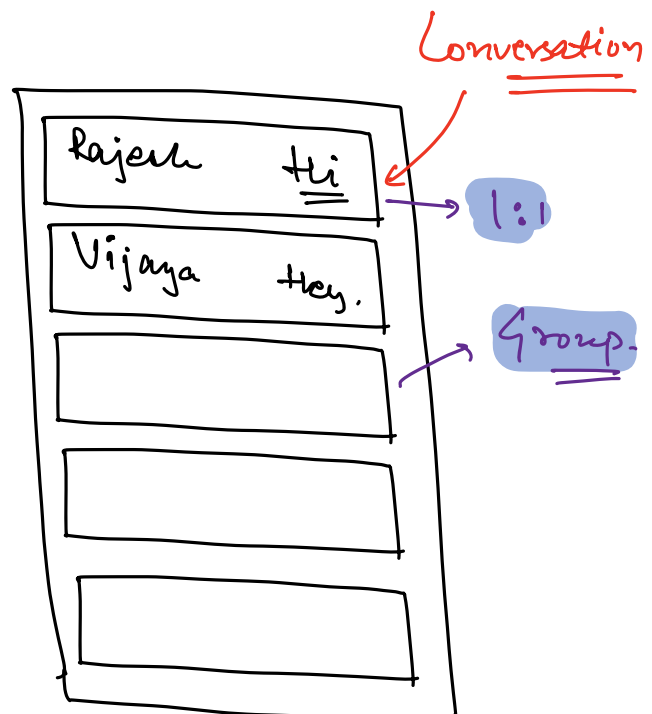 Conversation
Rajesh Hi
1:1
Vijaya Hey.
Group.